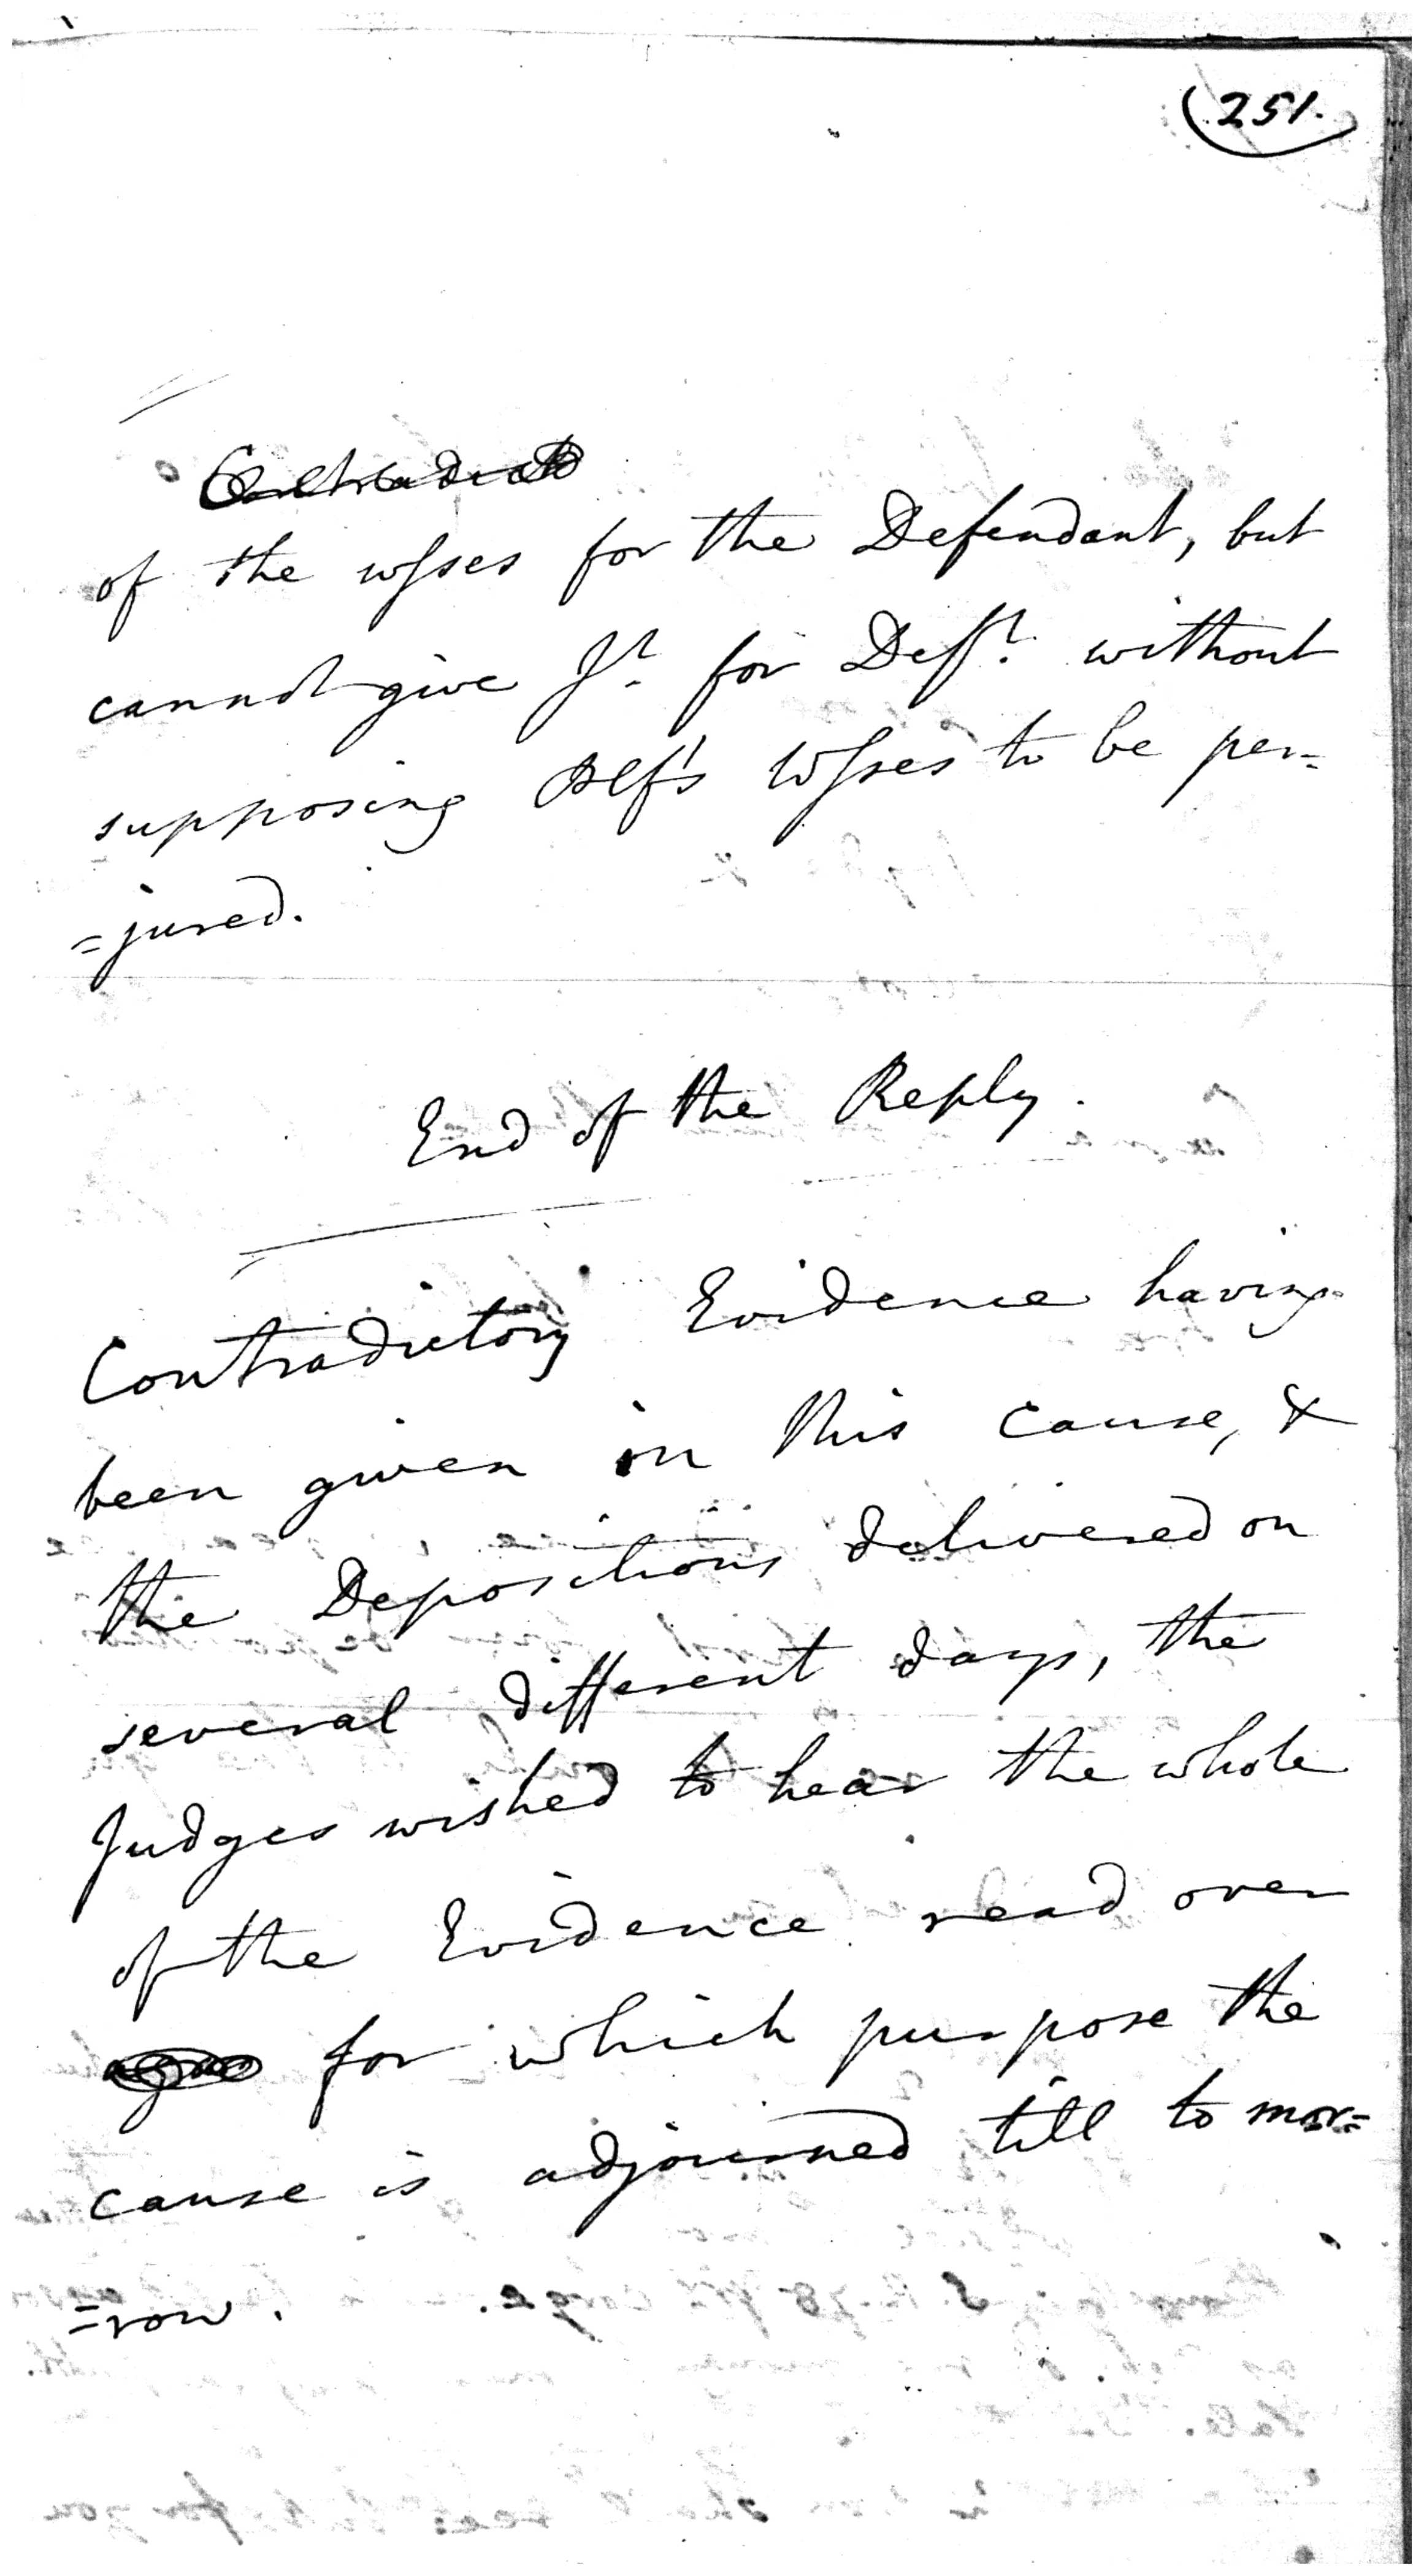 (251.
of the wsses for the Defendant, but
cannot give Jt. for Deft. without
supposing Plfs Wsses to be per=
=jured.
End of the Reply.
Contradictory Evidence having
been given in this cause, &
the Depositions delivered on
several different days, the
Judges wished to hear the whole
of the Evidence read over
for which purpose the
cause is adjourned till to mor=
=row.